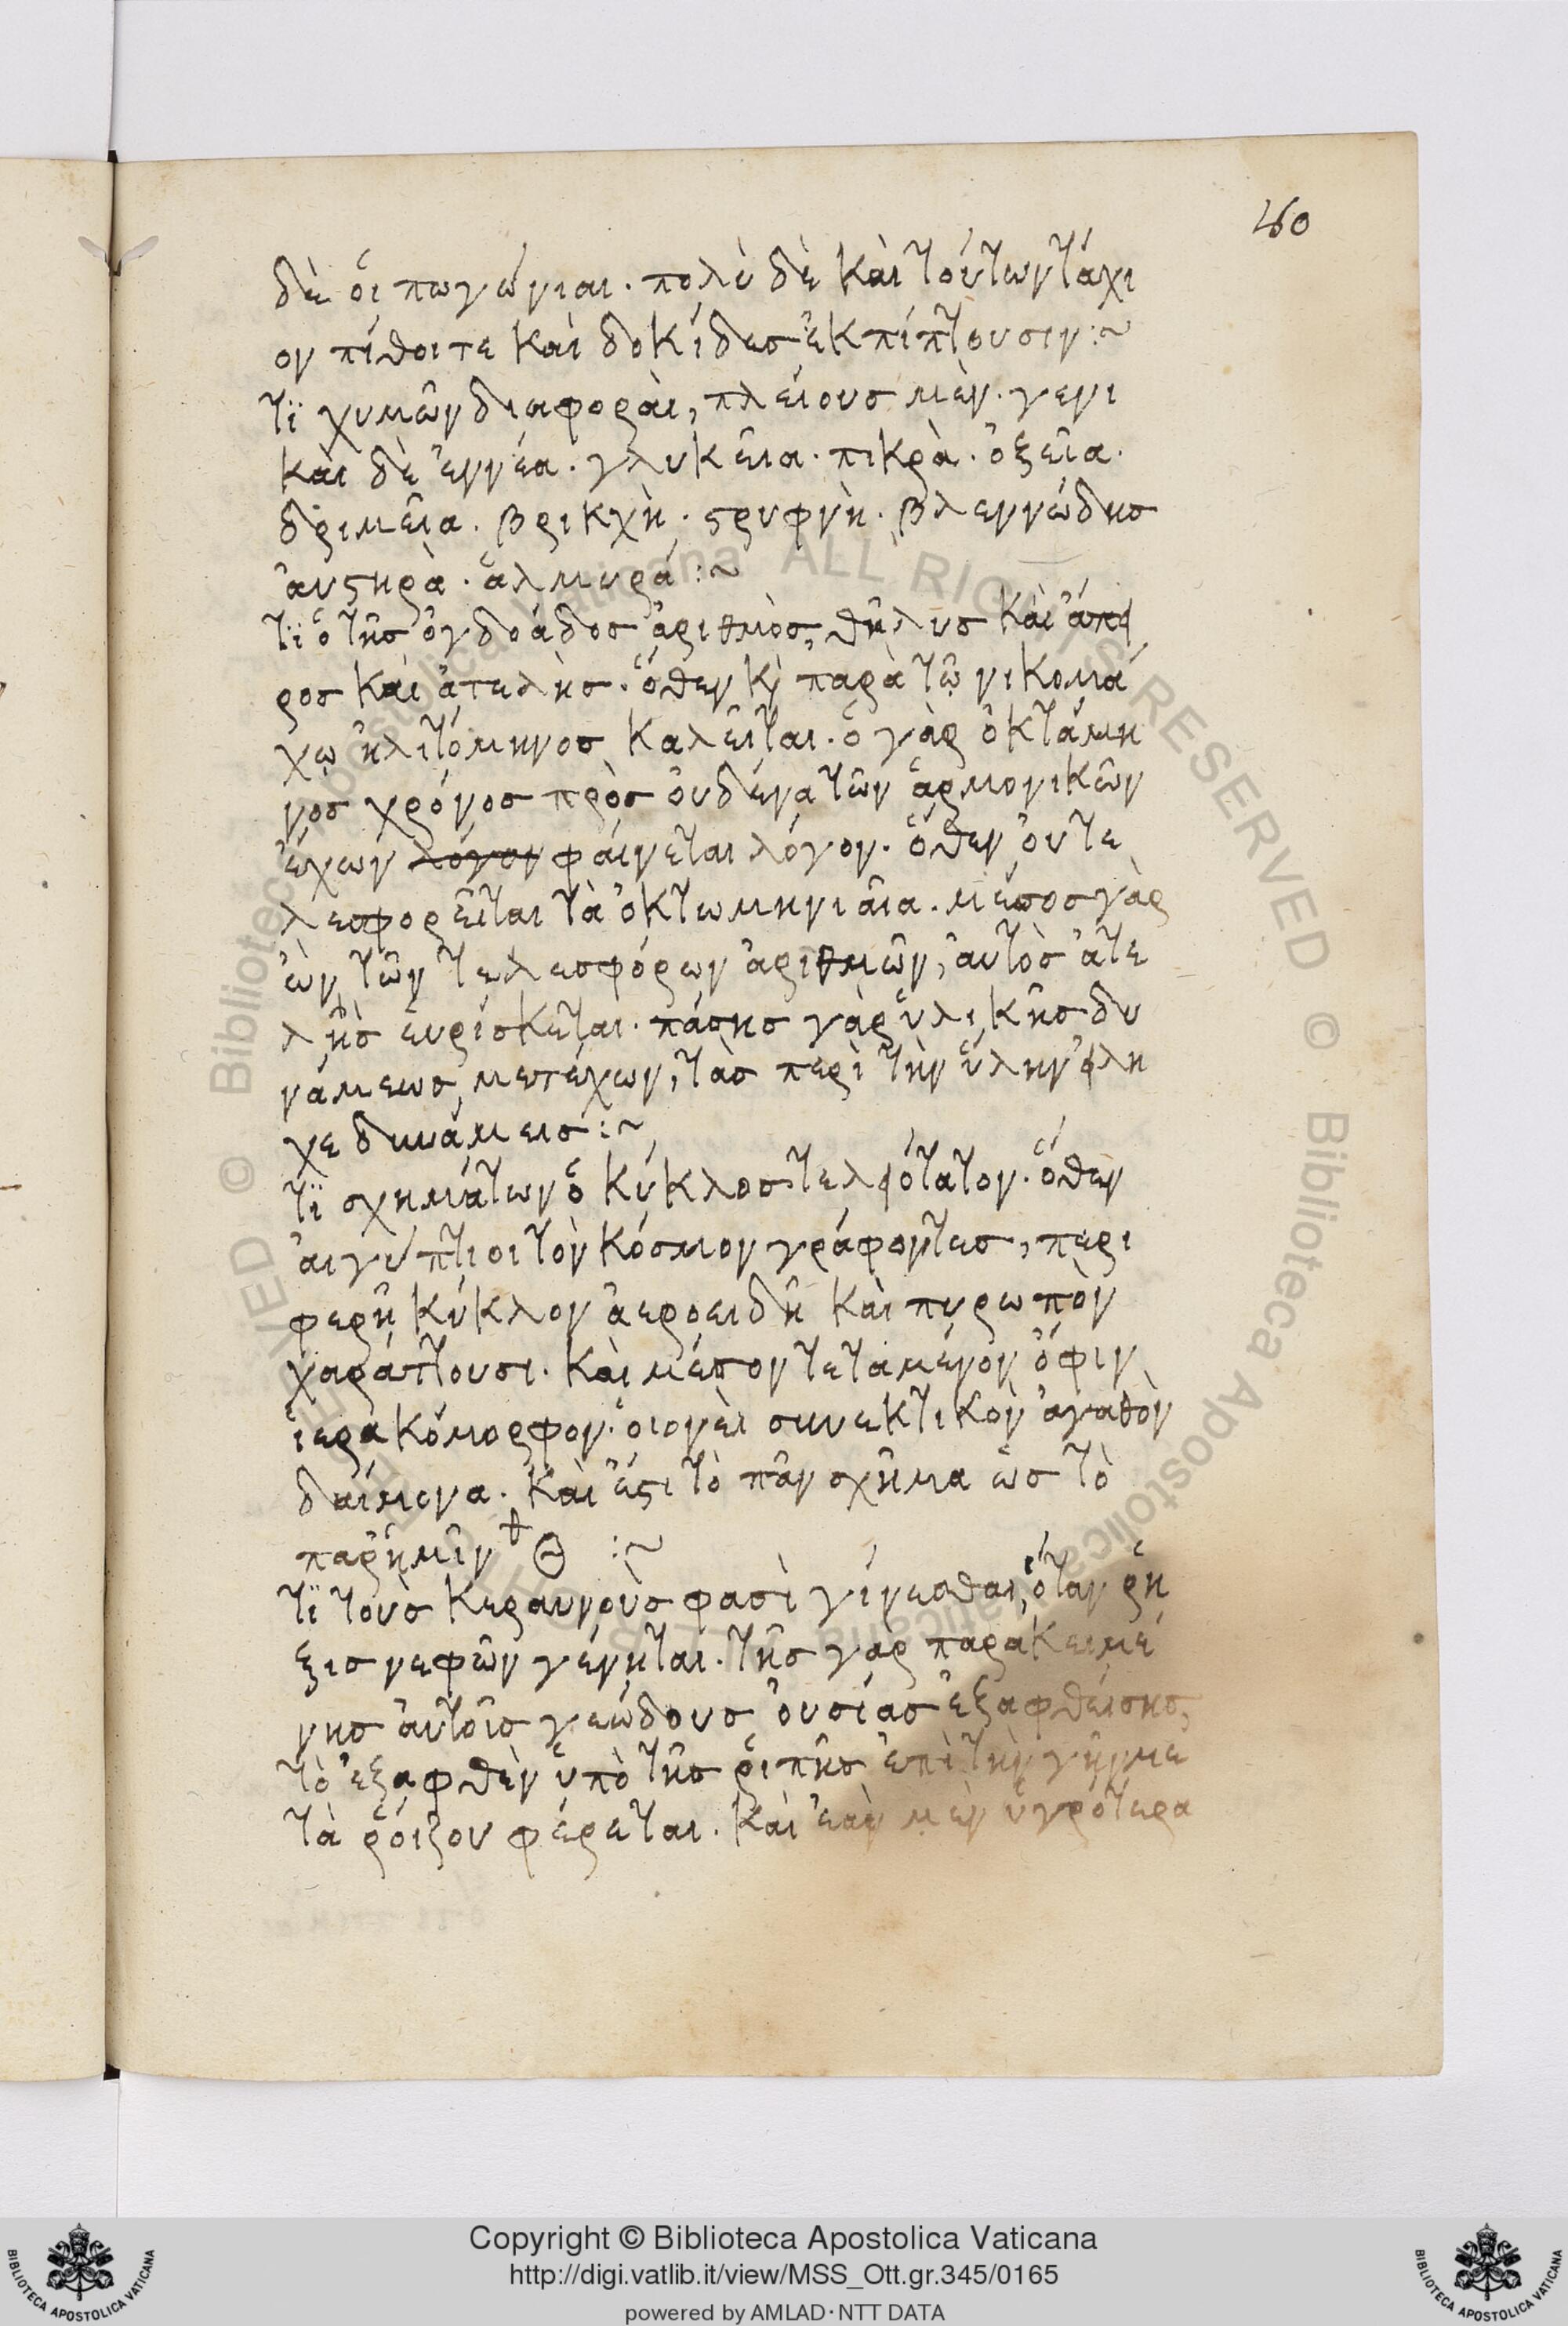 160
δὲ οἱ πωγώνιαι. πολὺ δὲ καὶ τούτων τάχι
ον πίθοι τε καὶ δοκίδεσ ἐκπίπτουσιν:~
τϊ χυμῶν διαφοραὶ, πλείουσ μὲν. γενι
καὶ δὲ ἐννέα. γλυκεῖα. πικρὰ. ὀξεῖα.
δριμεῖα. βρικχὴ. ϛρυφνὴ. βλεννώδησ
ἀυϛηρὰ. ἁλμυρά:~
τϊ ὁ τῆσ ὀγδοάδοσ ἀριθμὸσ, θῆλυσ καὶ ἄπει
ροσ καὶ ἀτελὴσ. ὅθεν κὶ παρὰ τῶ νικομά
χω ἠλιτόμηνοσ καλεῖται. ὁ γὰρ ὀκτάμη
νοσ χρόνοσ πρὸσ οὐδένα τῶν ἁρμονικῶν
ἔχων λόγον φαίνεται λόγον. ὅθεν οὐ τε
λεσφορεῖται τὰ ὀκτωμηνιαῖα. μέσοσ γὰρ
ὢν τῶν τελεσφόρων ἀριθμῶν, ἀυτὸσ ἀτε
λὴσ εὑρίσκεται. πάσησ γὰρ ὑλικῆσ δυ
νάμεωσ μετέχων, τὰσ περὶ τὴν ὕλην εἴλη
χε δυνάμεισ:~
τϊ σχημάτων ὁ κύκλοσ τελειότατον. ὅθεν
ἀιγύπτιοι τὸν κόσμον γράφοντεσ, περι
φερῆ κύκλον ἀεροειδῆ καὶ πυρωπὸν
χαράττουσι. καὶ μέσον τεταμένον ὄφιν
ἱερακόμορφον. ὁιονεὶ συνεκτικὸν ἀγαθὸν
δαίμονα. καὶ ἔϛι τὸ πᾶν σχῆμα ὡσ τὸ
παρ' ἡμῖν Θ :~
τϊ τοὺσ κεραυνοὺσ φασὶ γίνεσθαι, ὅταν ῥῆ
ξισ νεφῶν γένηται. τῆσ γὰρ παρακειμέ
νησ ἀυτοῖσ γεώδουσ οὐσίασ ἐξαφθείσησ,
τὸ ἐξαφθὲν ὑπὸ τῆσ ῥιπῆσ ἐπὶ τὴν γῆν με
τὰ ῥοίζου φέρεται. καὶ ἐὰν μὲν ὑγρότερα
Copyright © Biblioteca Apostolica Vaticana
http://digi.vatlib.it/view/MSS_Ott.gr.345/0165
powered by AMLAD·NTT DATA